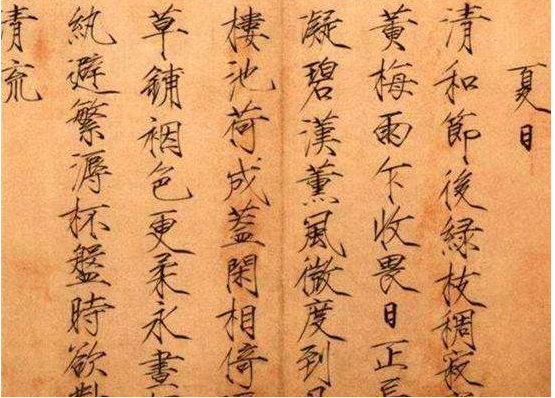 夏日
清和節後綠枝稠寂
黃梅雨乍收畏日正長
凝碧漢薰風微度到
棲池荷成蓋閑相倚
草鋪裀色更柔永晝
紈避繁溽杯盤時欲對
清流